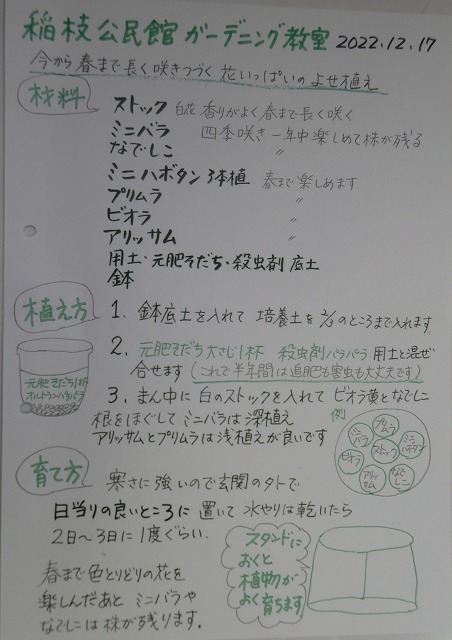 稲枝公民館ガーデニング教室 2022.12.17
今から春まで長く咲きつづく花いっぱいのよせ植え
材料
ストック 白花 香りがよく春まで長く咲く
ミニバラ 四季咲き一年中楽しめて株が残る
なでしこ 〃
ミニハボタン3本植 春まで楽しめます
プリムラ 〃
ビオラ 〃
アリッサム 〃
用土・元肥そだち・殺虫剤 底土
鉢
植え方
1. 鉢底土を入れて 培養土を2/3のところまで入れます
2. 元肥そだち大さじ1杯 殺虫剤パラパラ 用土と混ぜ
合せます (これで半年間は追肥も害虫も大丈夫です)
元肥そだち1杯
オルトランパラパラ
3. まん中に白のストックを入れて ビオラ黄となでしこ
根をほぐしてミニバラは深植え
アリッサムとプリムラは浅植えが良いです
例
プリムラ
ミニバラ
ミニハボタン
ストック
ビオラ
なでしこ
アリッサム
育て方
寒さに強いので玄関のソトで
日当りの良いところに置いて 水やりは乾いたら
2日〜3日に1度ぐらい.
春まで色とりどりの花を
楽しんだあと ミニバラや
なでしこは株が残ります.
スタンドに
おくと
植物が
よく育ちます